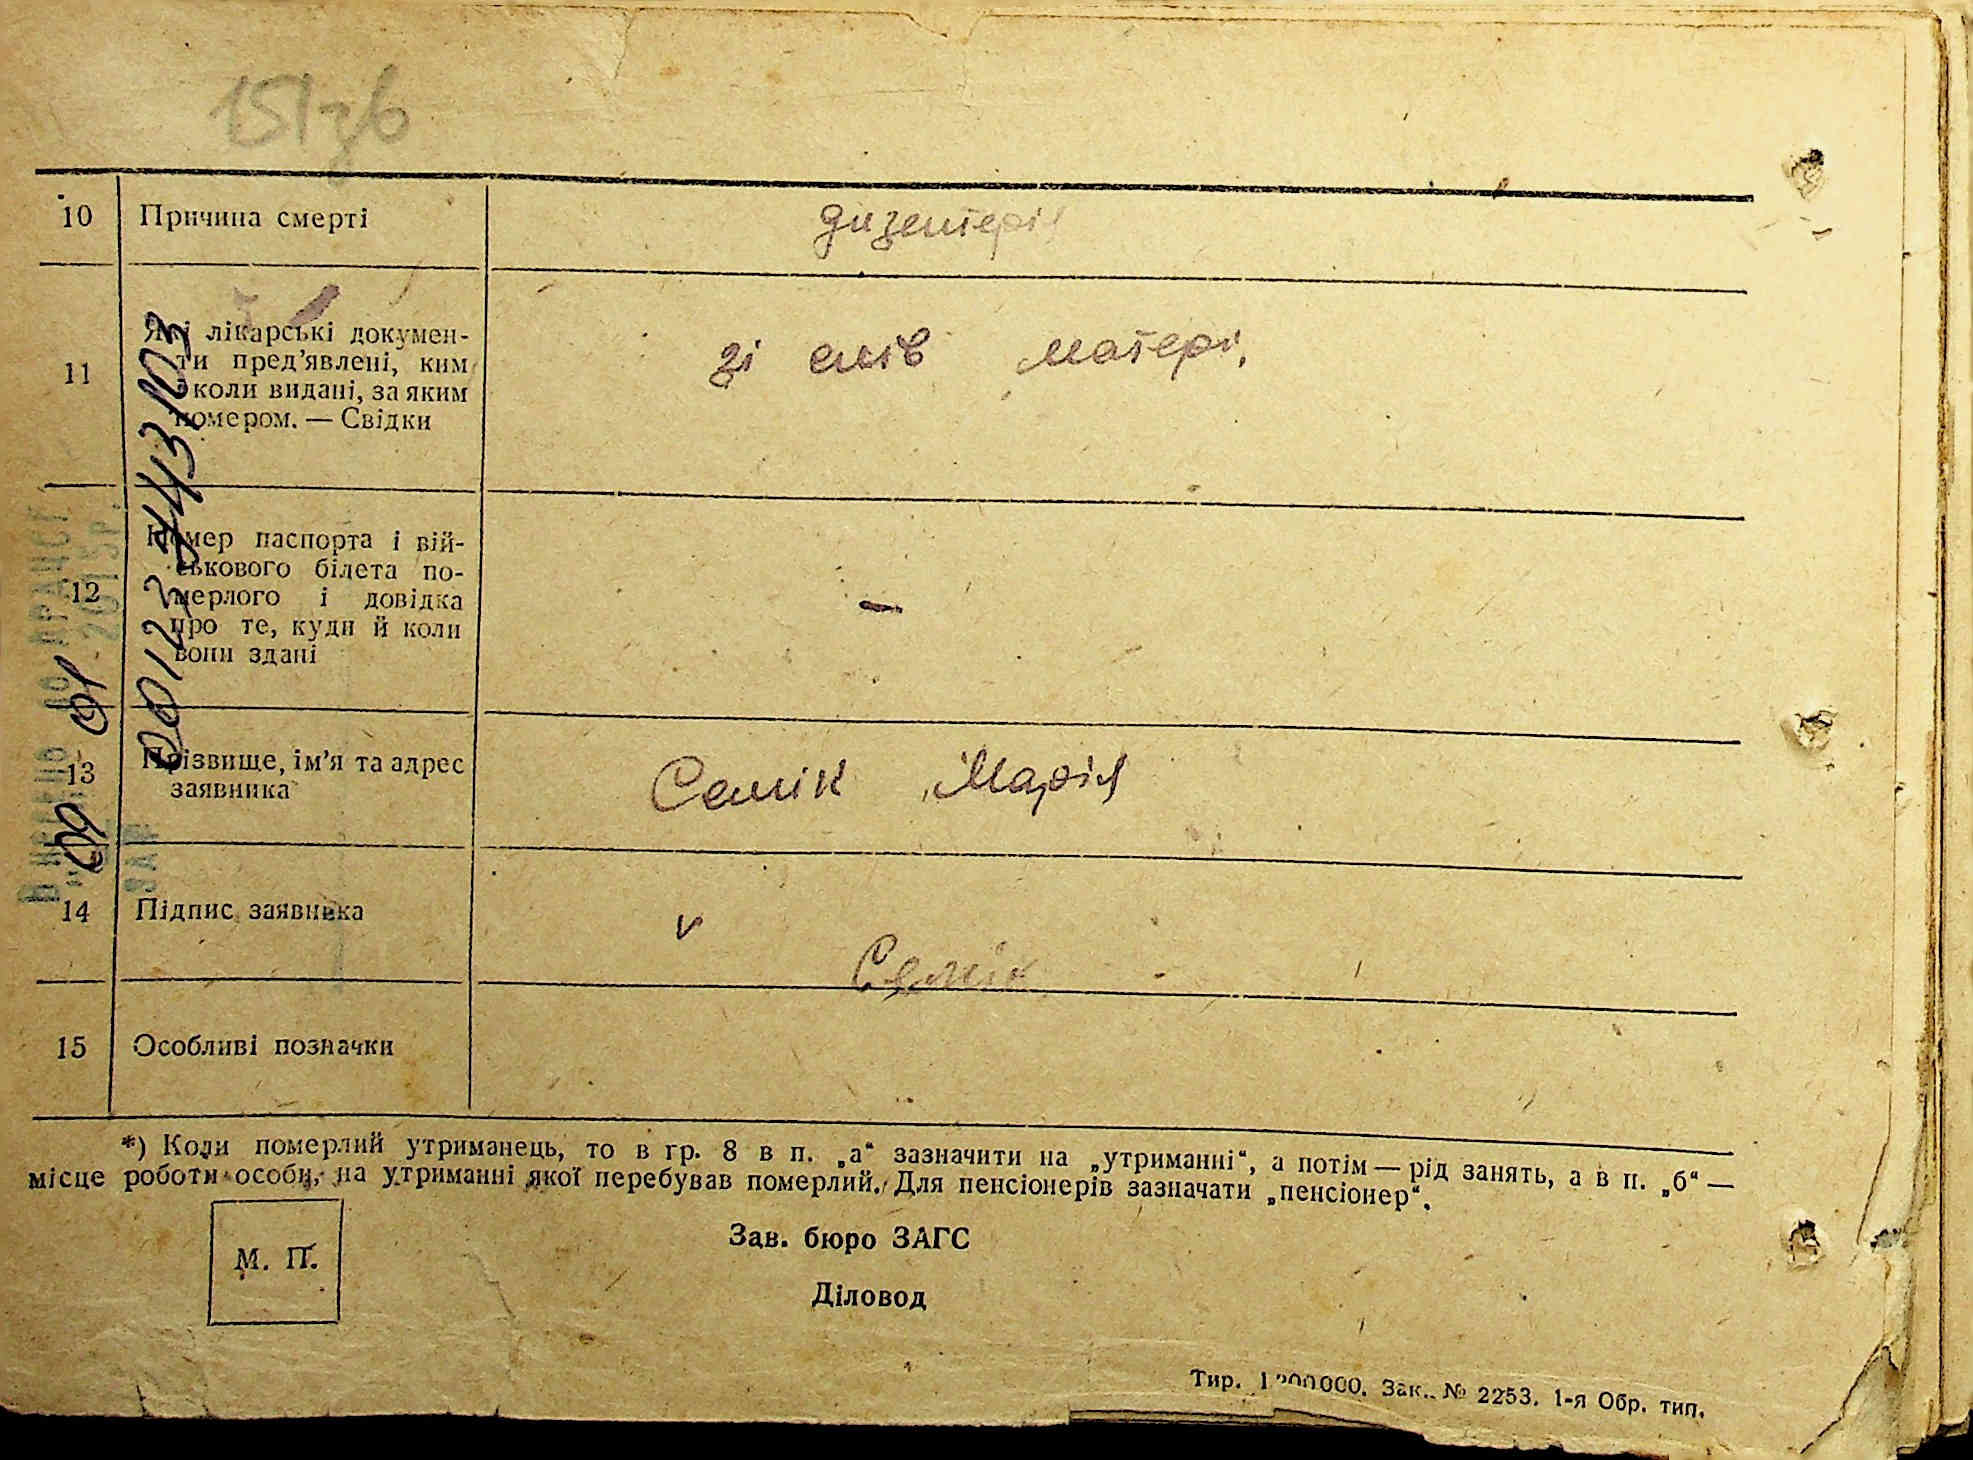 151зв
10 Причина смерті дизентерія
11 Які лікарські докумен-
ти пред'явлені, ким
і коли видані, за яким
номером. — Свідки
зі слів матері.
12 Номер паспорта і вій-
ськового білета по-
мерлого і довідка
про те, куди й коли
вони здані
—
13 Прізвище, ім'я та адрес
заявника
Семік Марія
14 Підпис заявника
v
Семік
15 Особливі позначки
*) Коли померлий утриманець, то в гр. 8 в п. „а“ зазначити на „утриманні“, а потім — рід занять, а в п. „б“ —
місце роботи особи, на утриманні якої перебував померлий. Для пенсіонерів зазначати „пенсіонер“.
М. П.
Зав. бюро ЗАГС
Діловод
Тир. 1200000. Зак. № 2253. 1-я Обр. тип.